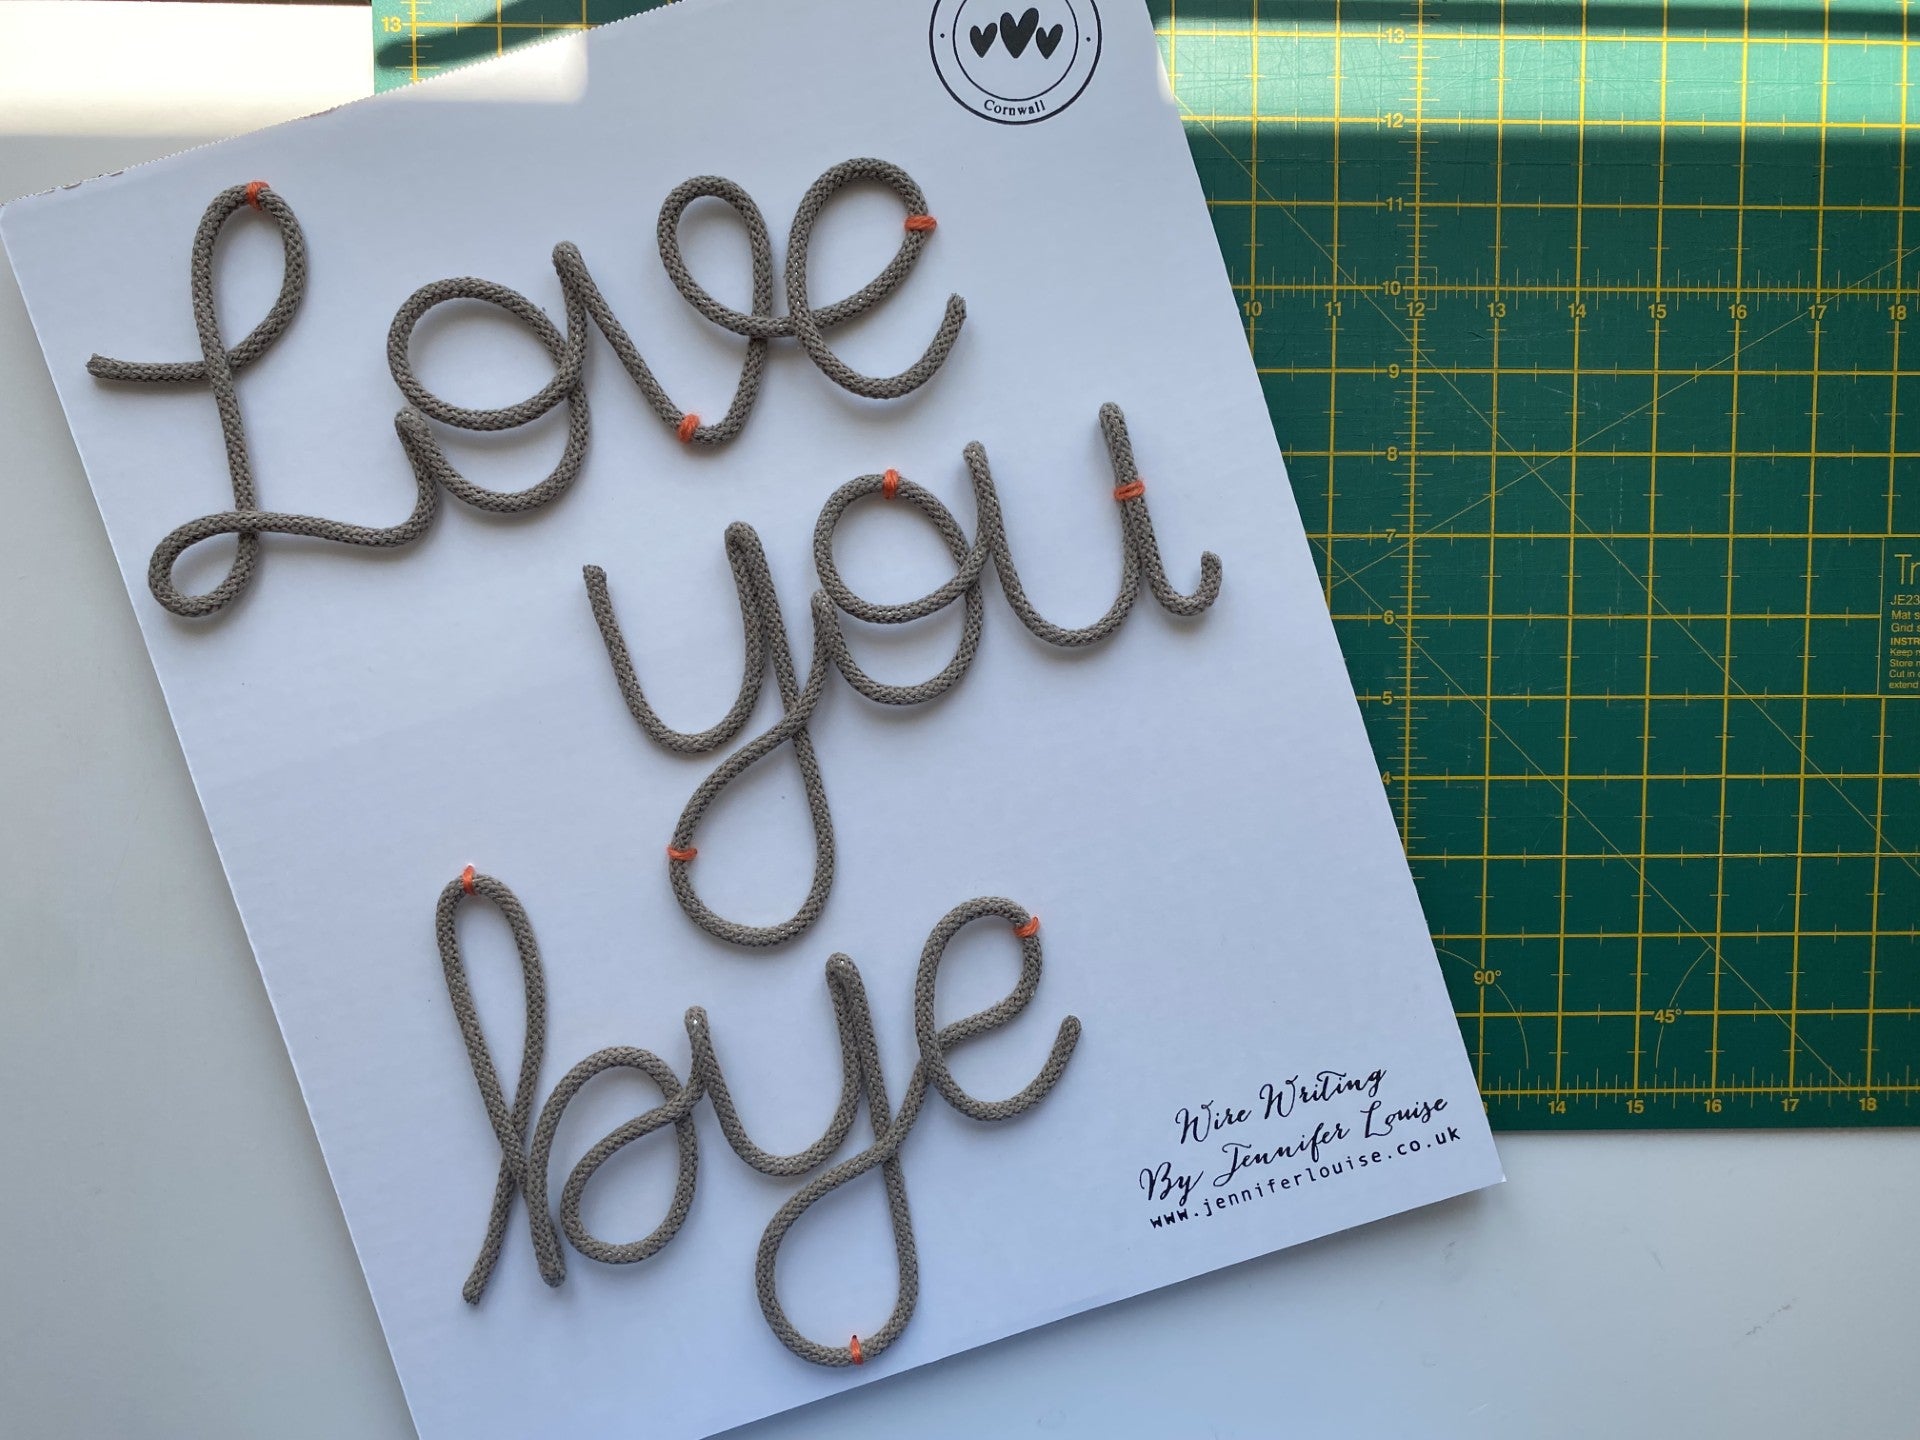 Cornwall
Love
you
bye
Wire Writing
By Jennifer Louise
www.jenniferlouise.co.uk
13
13
12
11
10
10 11 12 13 14 15 16 17 18
9
8
7
6
5
4
90°
45°
13 14 15 16 17 18
JE23
Mat s
Grid s
INSTR
Keep
Store
Cut in
extend